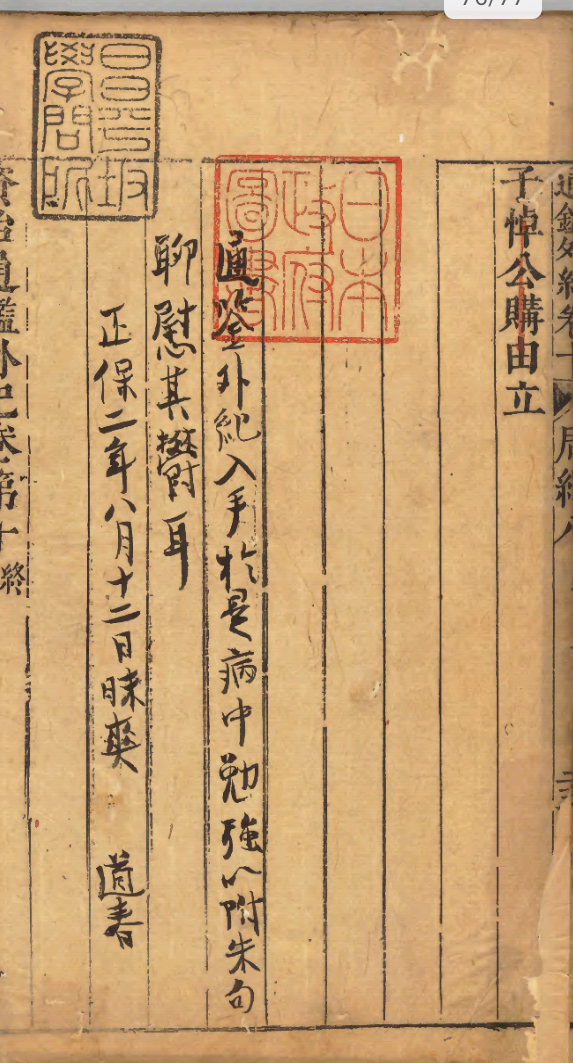 通鑑外紀卷十 周紀八
子悼公購由立
日本
政府
圖書
通鑒外紀入手於是病中勉強以附朱句
聊慰其欝耳
正保二年八月十二日昧爽 道春
昌平坂
學問所
資治通鑑外紀卷第十 終